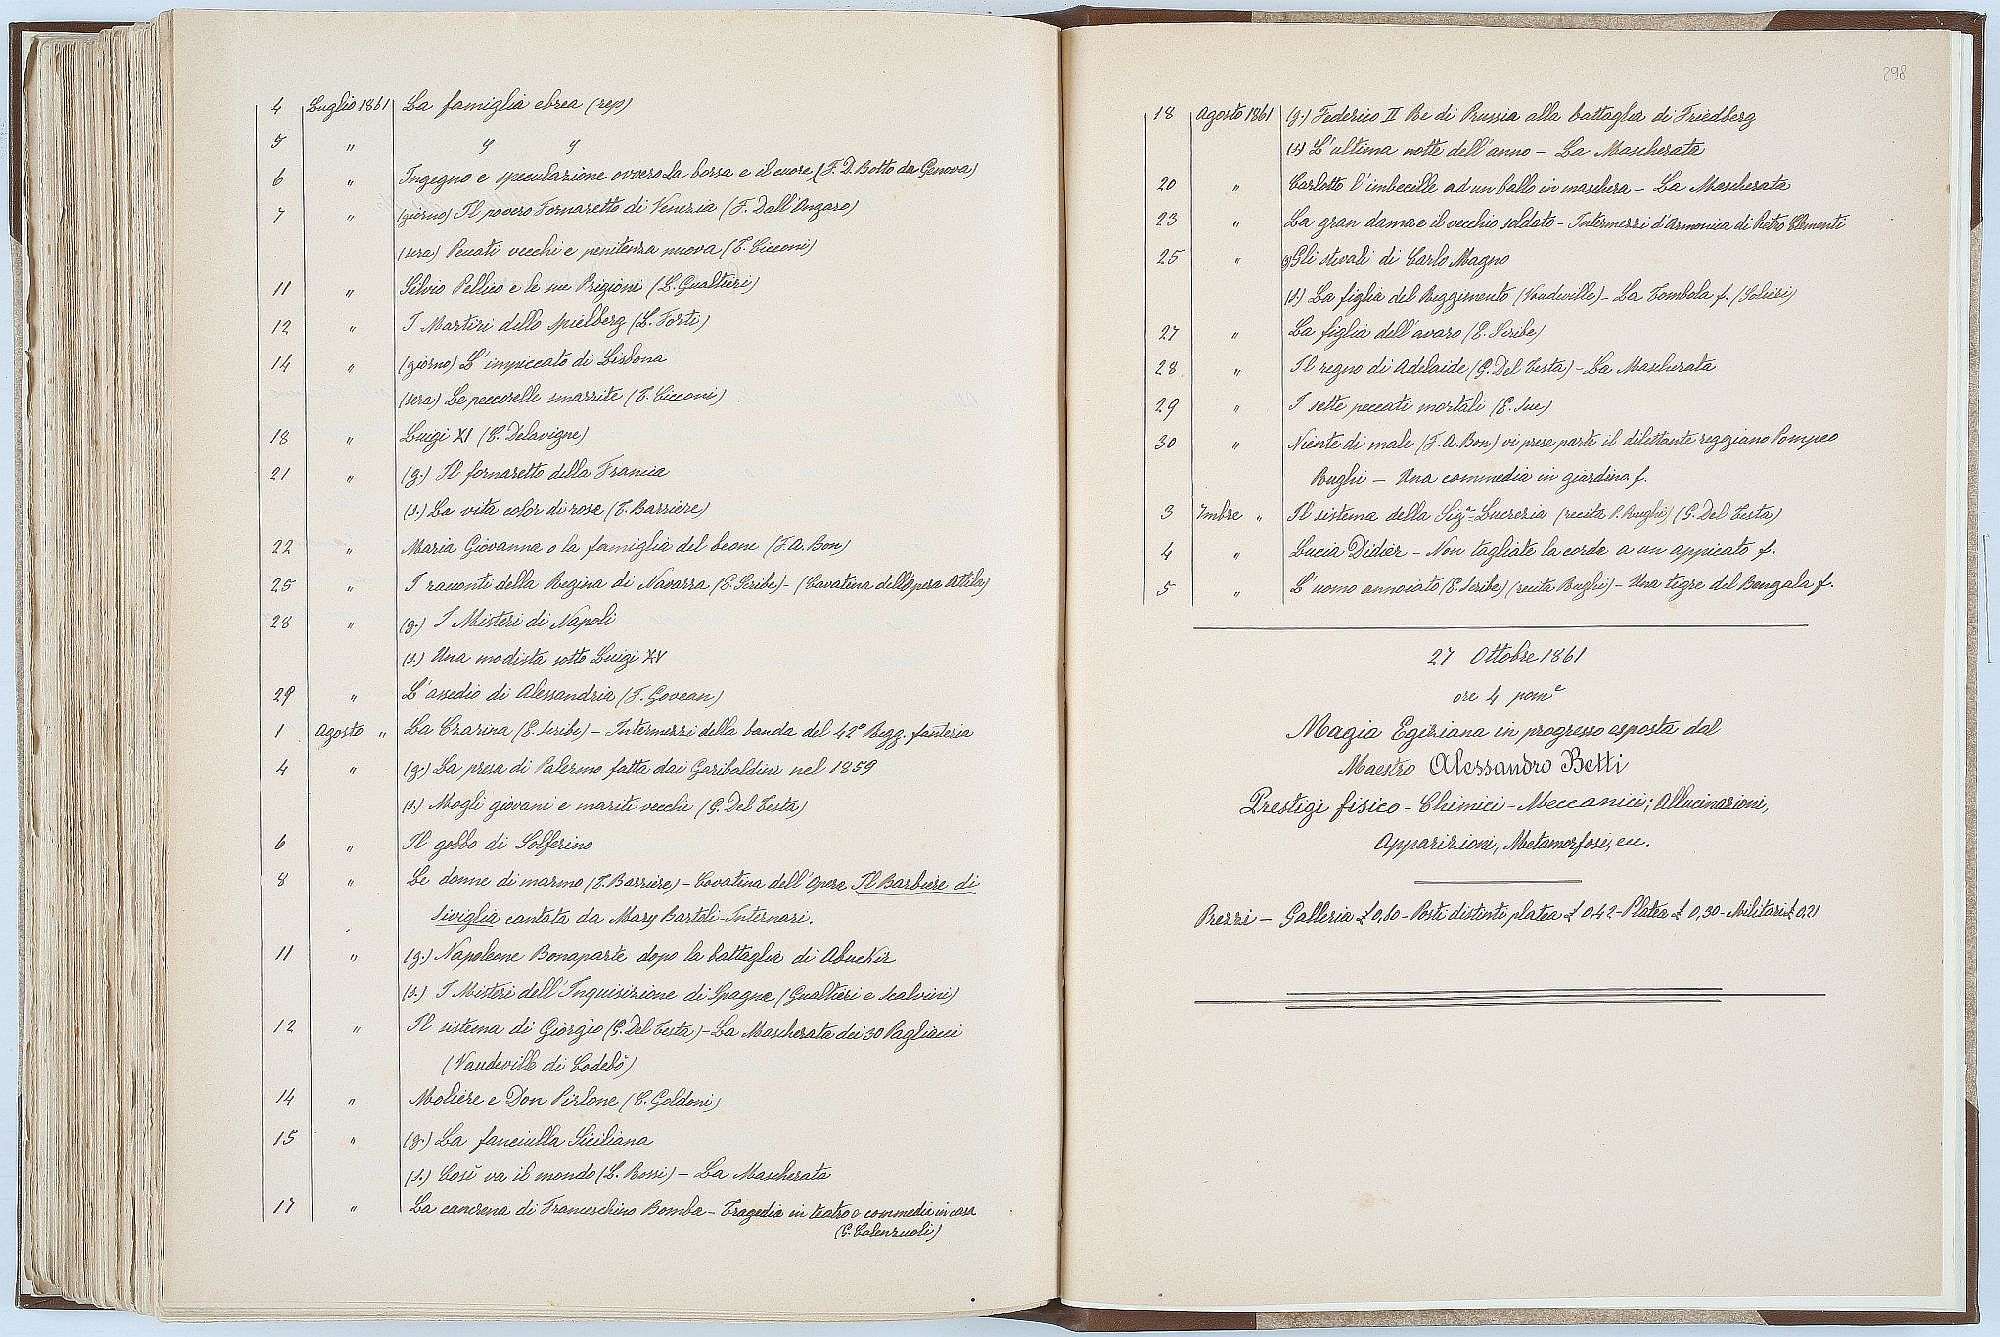 4 Luglio 1861 La famiglia ebrea (rep)
5 " " "
6 " Ingegno e speculazione ovvero La borsa e il cuore (F. D. Botto da Genova)
7 " (giorno) Il povero Fornaretto di Venezia (F. Dall'Ongaro)
(sera) Peccati vecchi e penitenza nuova (T. Cicconi)
11 " Silvio Pellico e le sue Prigioni (L. Gualtieri)
12 " I Martiri dello Spielberg (L. Forti)
14 " (giorno) L'impiccato di Lisbona
(sera) Le peccorelle smarrite (T. Cicconi)
18 " Luigi XI (C. Delavigne)
21 " (g.) Il fornaretto della Francia
(s.) La vita color di rose (T. Barrière)
22 " Maria Giovanna o la famiglia del beone (F. A. Bon)
25 " I racconti della Regina di Navarra (E. Scribe) - (Cavatina dell'opera Attila)
28 " (g.) I Misteri di Napoli
(s.) Una modista sotto Luigi XV
29 " L'assedio di Alessandria (F. Govean)
1 Agosto " La Czarina (E. Scribe) - Intermezzi della banda del 42° Regg. fanteria
4 " (g.) La presa di Palermo fatta dai Garibaldini nel 1859
(s.) Mogli giovani e mariti vecchi (G. Del Testa)
6 " Il gobbo di Solferino
8 " Le donne di marmo (T. Barrière) - Cavatina dell'Opera Il Barbiere di
Siviglia cantata da Mary Bartoli-Internari.
11 " (g.) Napoleone Bonaparte dopo la battaglia di Abuckir
(s.) I Misteri dell'Inquisizione di Spagna (Gualtieri e Salvini)
12 " Il sistema di Giorgio (G. Del Testa) - La Mascherata dei 30 Pagliacci
(Vaudeville di Codebò)
14 " Moliere e Don Pirlone (C. Goldoni)
15 " (g.) La fanciulla Siciliana
(s.) Così va il mondo (L. Rossi) - La Mascherata
17 " La cancrena di Franceschino Bomba - Tragedia in teatro e commedia in casa
(G. Calenzuoli)
298
18 Agosto 1861 (g.) Federico II Re di Prussia alla battaglia di Friedberg
(s) L'ultima notte dell'anno - La Mascherata
20 " Carlotto l'imbecille ad un ballo in maschera - La Mascherata
23 " La gran dama e il vecchio soldato - Intermezzi d'Armonica di Pietro Clementi
25 " (g) Gli stivali di Carlo Magno
(s.) La figlia del Reggimento (Vaudeville) - La Tombola f. (Solieri)
27 " La figlia dell'avaro (E. Scribe)
28 " Il regno di Adelaide (G. Del Testa) - La Mascherata
29 " I sette peccati mortali (E. Sue)
30 " Niente di male (F. A. Bon) vi prese parte il dilettante reggiano Pompeo
Rughi - Una commedia in giardino f.
3 7mbre " Il sistema della Sigra Lucrezia (recita P. Rughi) (G. Del Testa)
4 " Lucia Didier - Non tagliate la corda a un appicato f.
5 " L'uomo annoiato (E. Scribe) (recita Rughi) - Una tigre del Bengala f.
27 Ottobre 1861
ore 4 pome
Magia Egiziana in progresso esposta dal
Maestro Alessandro Betti
Prestigi fisico - Chimici - Meccanici; Allucinazioni,
Apparizioni, Metamorfosi, ecc.
Prezzi - Galleria £ 0,60 - Posti distinti platea £ 0,42 - Platea £ 0,30 - Militari £ 0,21